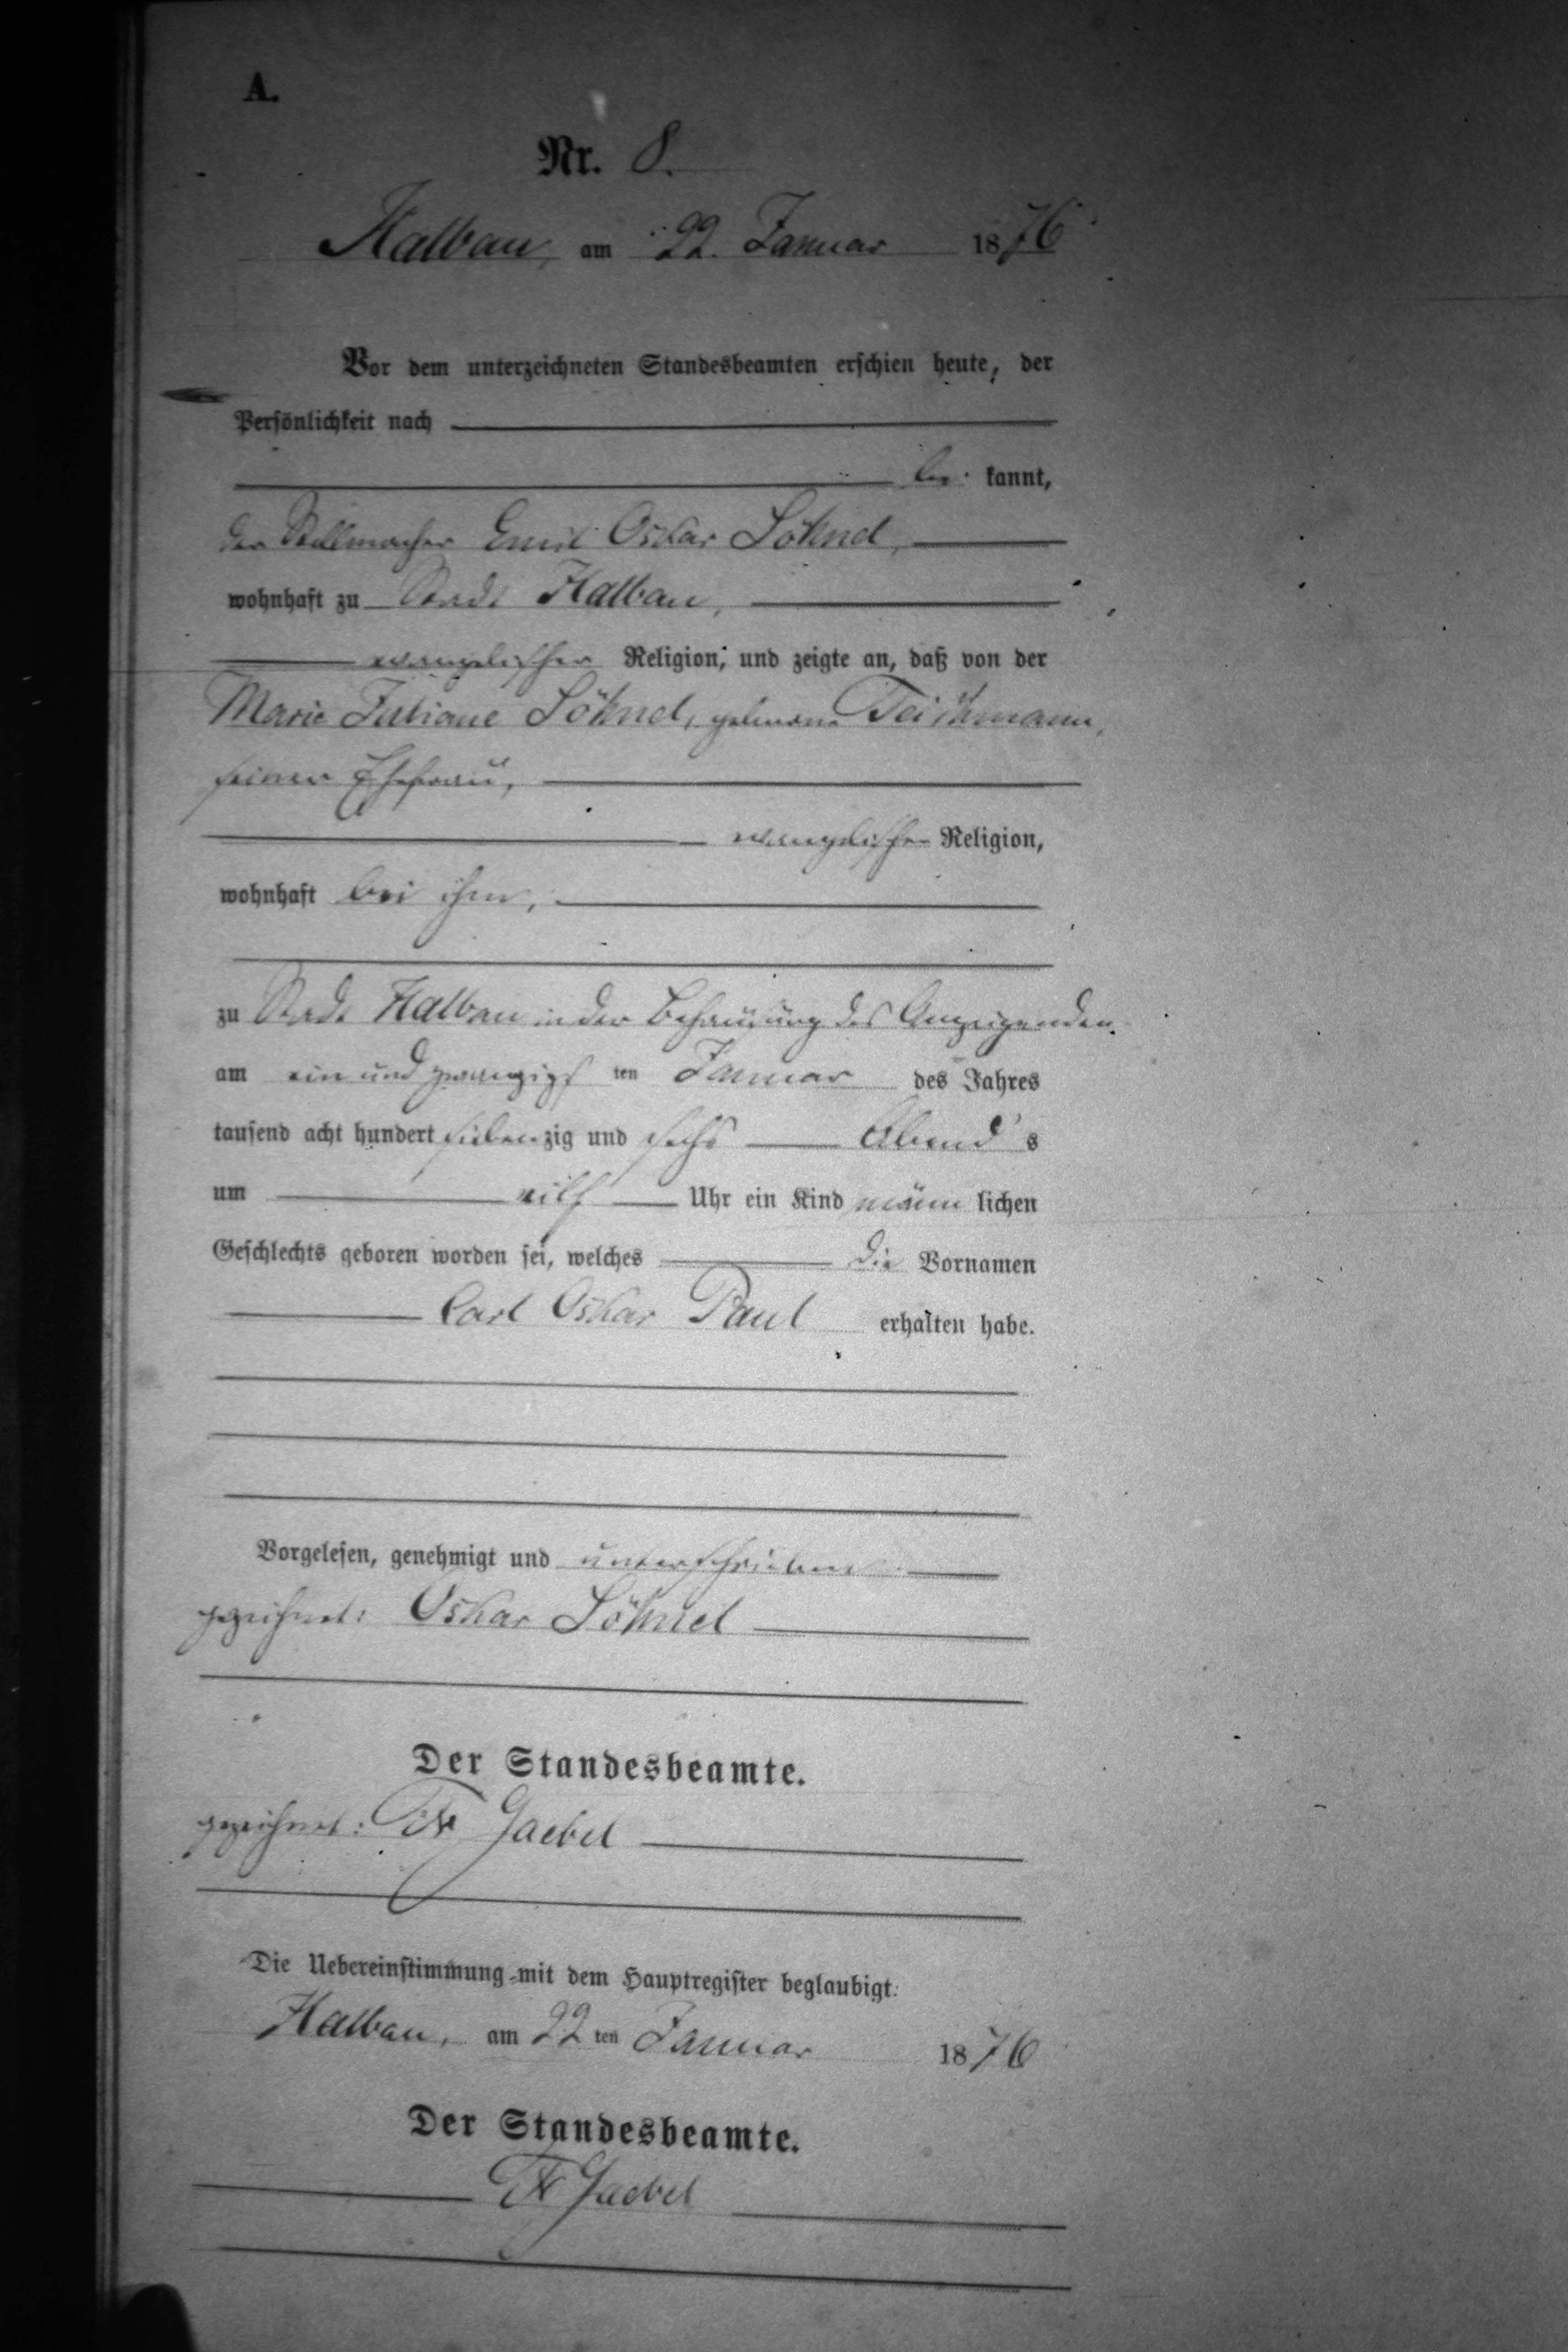 A.
Nr. 8.
Halbau, am 22. Januar 1876
Vor dem unterzeichneten Standesbeamten erschien heute, der
Persönlichkeit nach
be kannt,
der Stellmacher Emil Oskar Söhnel,
wohnhaft zu Stadt Halbau,
evangelischer Religion, und zeigte an, daß von der
Marie Juliane Söhnel, geborene Teichmann,
seiner Ehefrau,
evangelischer Religion,
wohnhaft bei ihm,
zu Stadt Halbau in der Behausung des Anzeigenden
am ein und zwanzigs ten Januar des Jahres
tausend acht hundert siebenzig und sechs Abend s
um eilf Uhr ein Kind männ lichen
Geschlechts geboren worden sei, welches die Vornamen
Carl Oskar Paul erhalten habe.
Vorgelesen, genehmigt und unterschrieben
gezeichnet: Oskar Söhnel
Der Standesbeamte.
gezeichnet: Gaebel
Die Uebereinstimmung mit dem Hauptregister beglaubigt.
Halbau, am 22 ten Januar 1876
Der Standesbeamte.
Gaebel